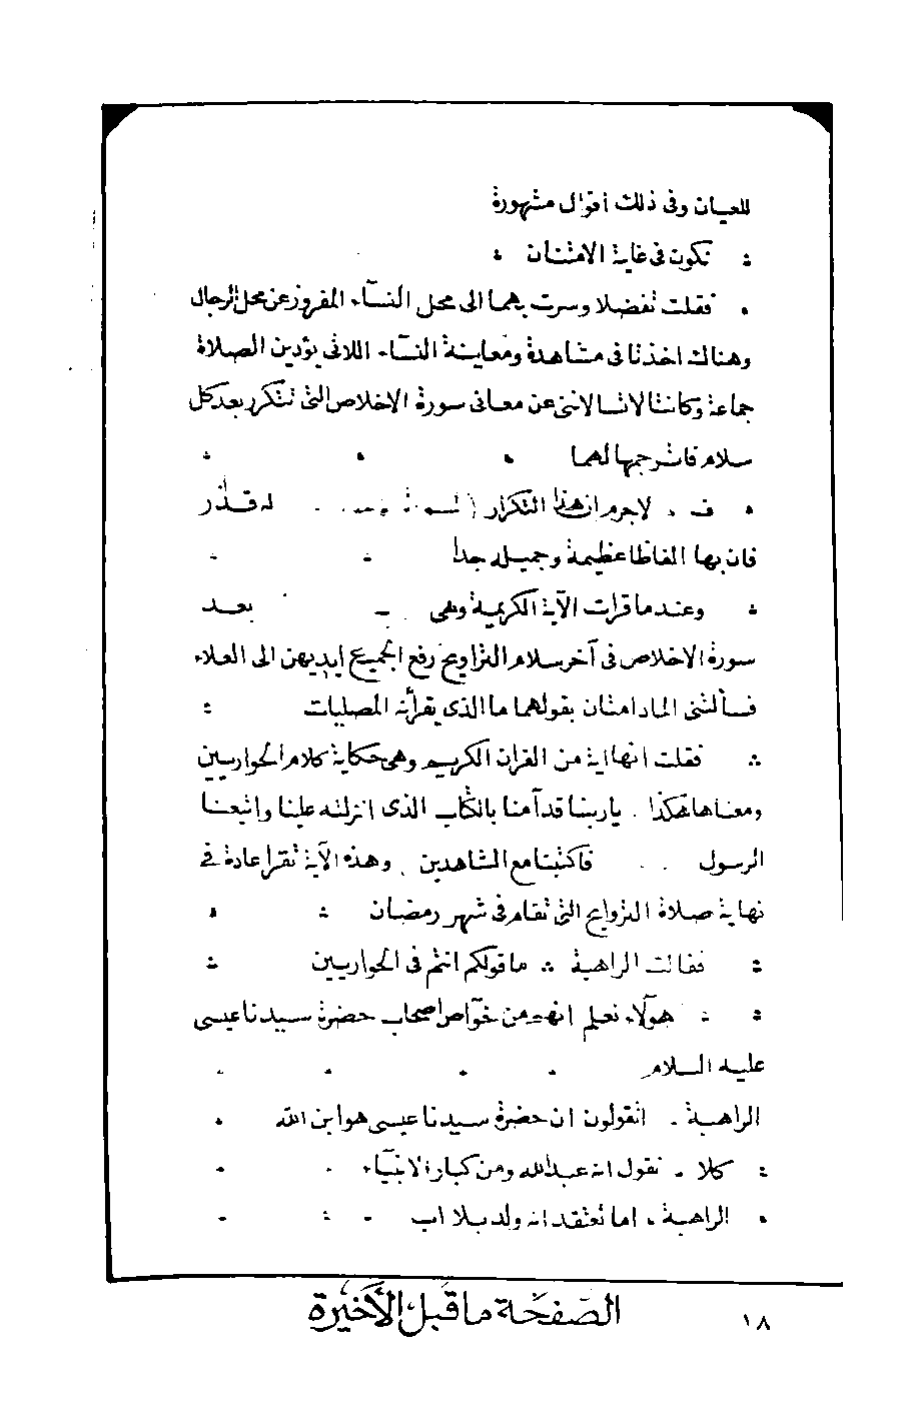 للعيان وفى ذلك اقوال مشهورة
تكون فى غاية الامتنان
فقلت تفضلا وسرت بهما الى محل النسآء المفروز عن محل الرجال
وهناك اخذتا فى مشاهدة ومعاينة النسآء اللاتى يؤدين الصلاة
جماعة وكانتا لاتسالانى عن معانى سورة الاخلاص التى تتكرر بعد كل
سلام فاترجمها لهما
ف . لاجرم ان هذا التكرار له قدر
فان بها الفاظا عظيمة وجميله جدا
وعندما قرات الآية الكريمة وهى بعد
سورة الاخلاص فى آخر سلام التراويح رفع الجميع ايديهن الى العلاء
فسألتنى المادامتان بقولهما ما الذى يقرأنه المصليات
فقلت انها اية من القران الكريم وهى حكاية كلام الحواريين
ومعناها هكذا . ياربنا قد آمنا بالكتاب الذى انزلته علينا واتبعنا
الرسول فاكتبنا مع الشاهدين . وهذه الآية تقرا عادة فى
نهاية صلاة التراويح التى تقام فى شهر رمضان
فقالت الراهبة ماقولكم انتم فى الحواريين
هولآء نعلم انهم من خوآص اصحاب حضرة سيدنا عيسى
عليه السلام
الراهبة . اتقولون ان حضرة سيدنا عيسى هو ابن الله
كلا . نقول انه عبدالله ومن كبار الانبيآء
الراهبة . اما تعتقد انه ولد بلا اب
الصفحة ما قبل الأخيرة
١٨